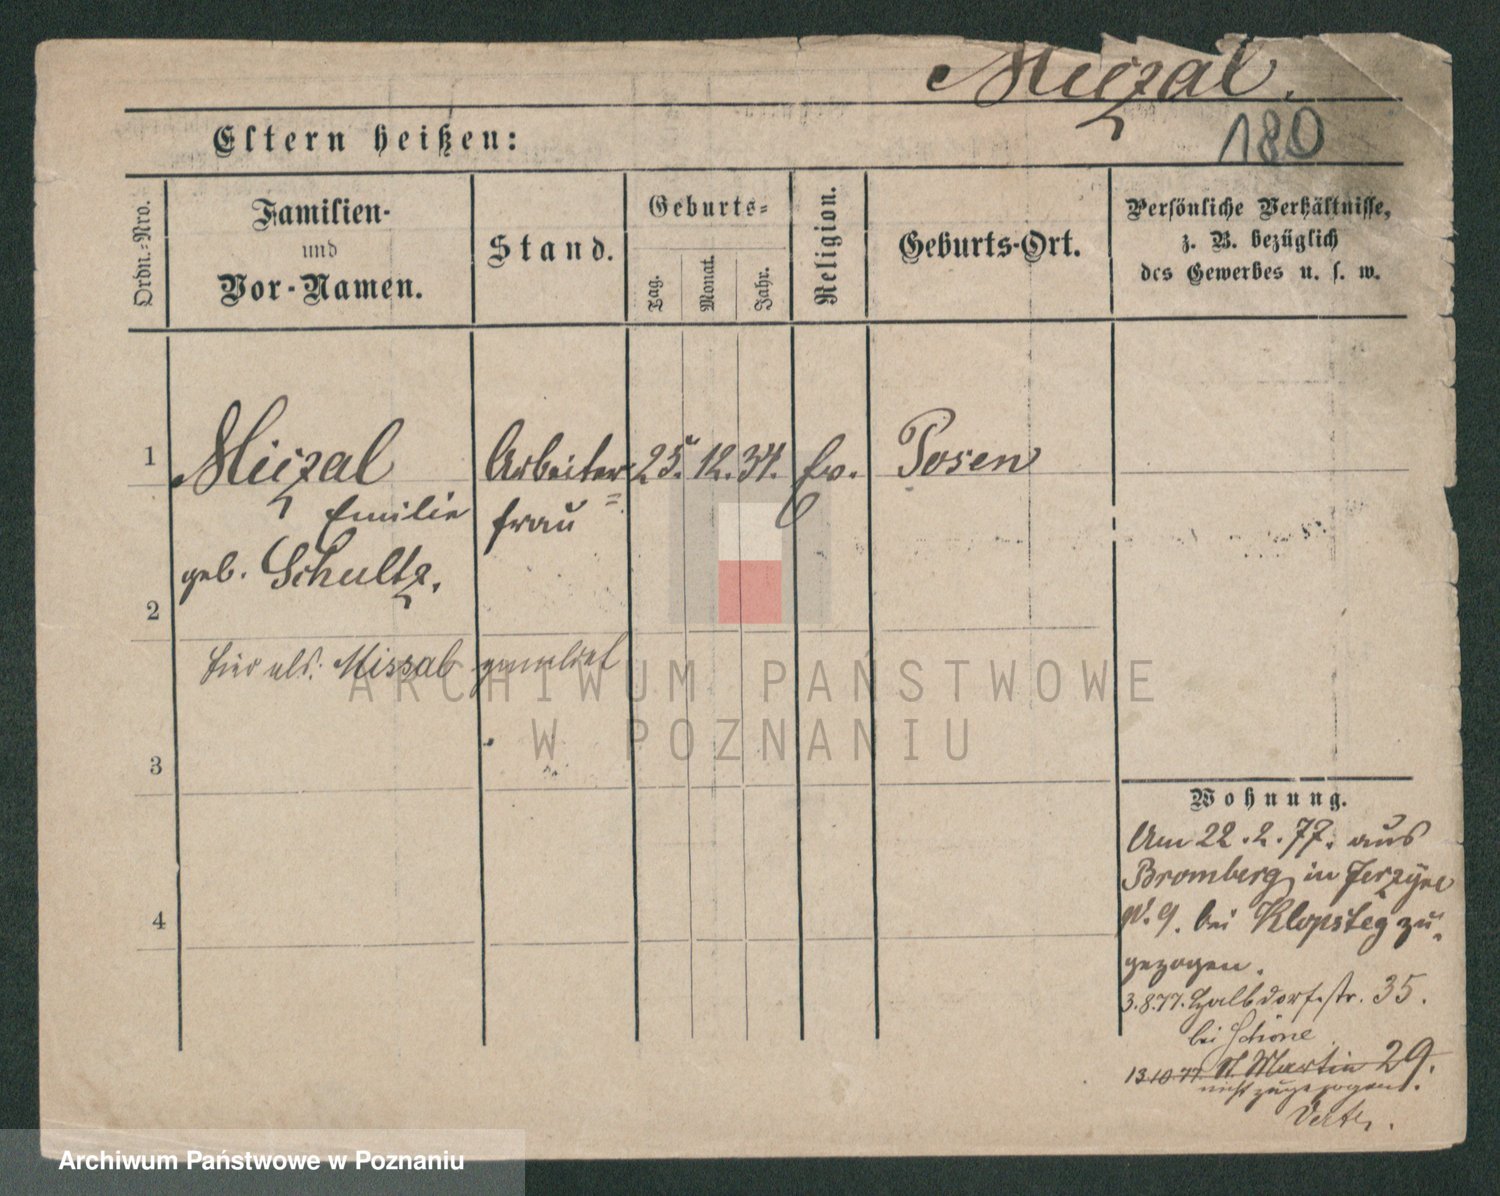 Miczal.
180
Eltern heißen:
Ordn.-Nro.
Familien-
und
Vor-Namen.
Stand.
Geburts-
Tag.
Monat.
Jahr.
Religion.
Geburts-Ort.
Persönliche Verhältnisse,
z. B. bezüglich
des Gewerbes u. s. w.
1 Miczal Arbeiter 25. 12. 34. Ev. Posen
Emilie frau
geb. Schultz.
2
hier als: Missal gemeldet
ARCHIWUM PAŃSTWOWE
W POZNANIU
3
4
Wohnung.
Am 22.2.77. aus
Bromberg in Jerzyce
N. 9. bei Klopsteg zu-
gezogen.
3.8.77. Halbdorfstr. 35.
bei Schöne
13.10.77. St. Martin 29.
nicht zugezogen.
Archiwum Państwowe w Poznaniu